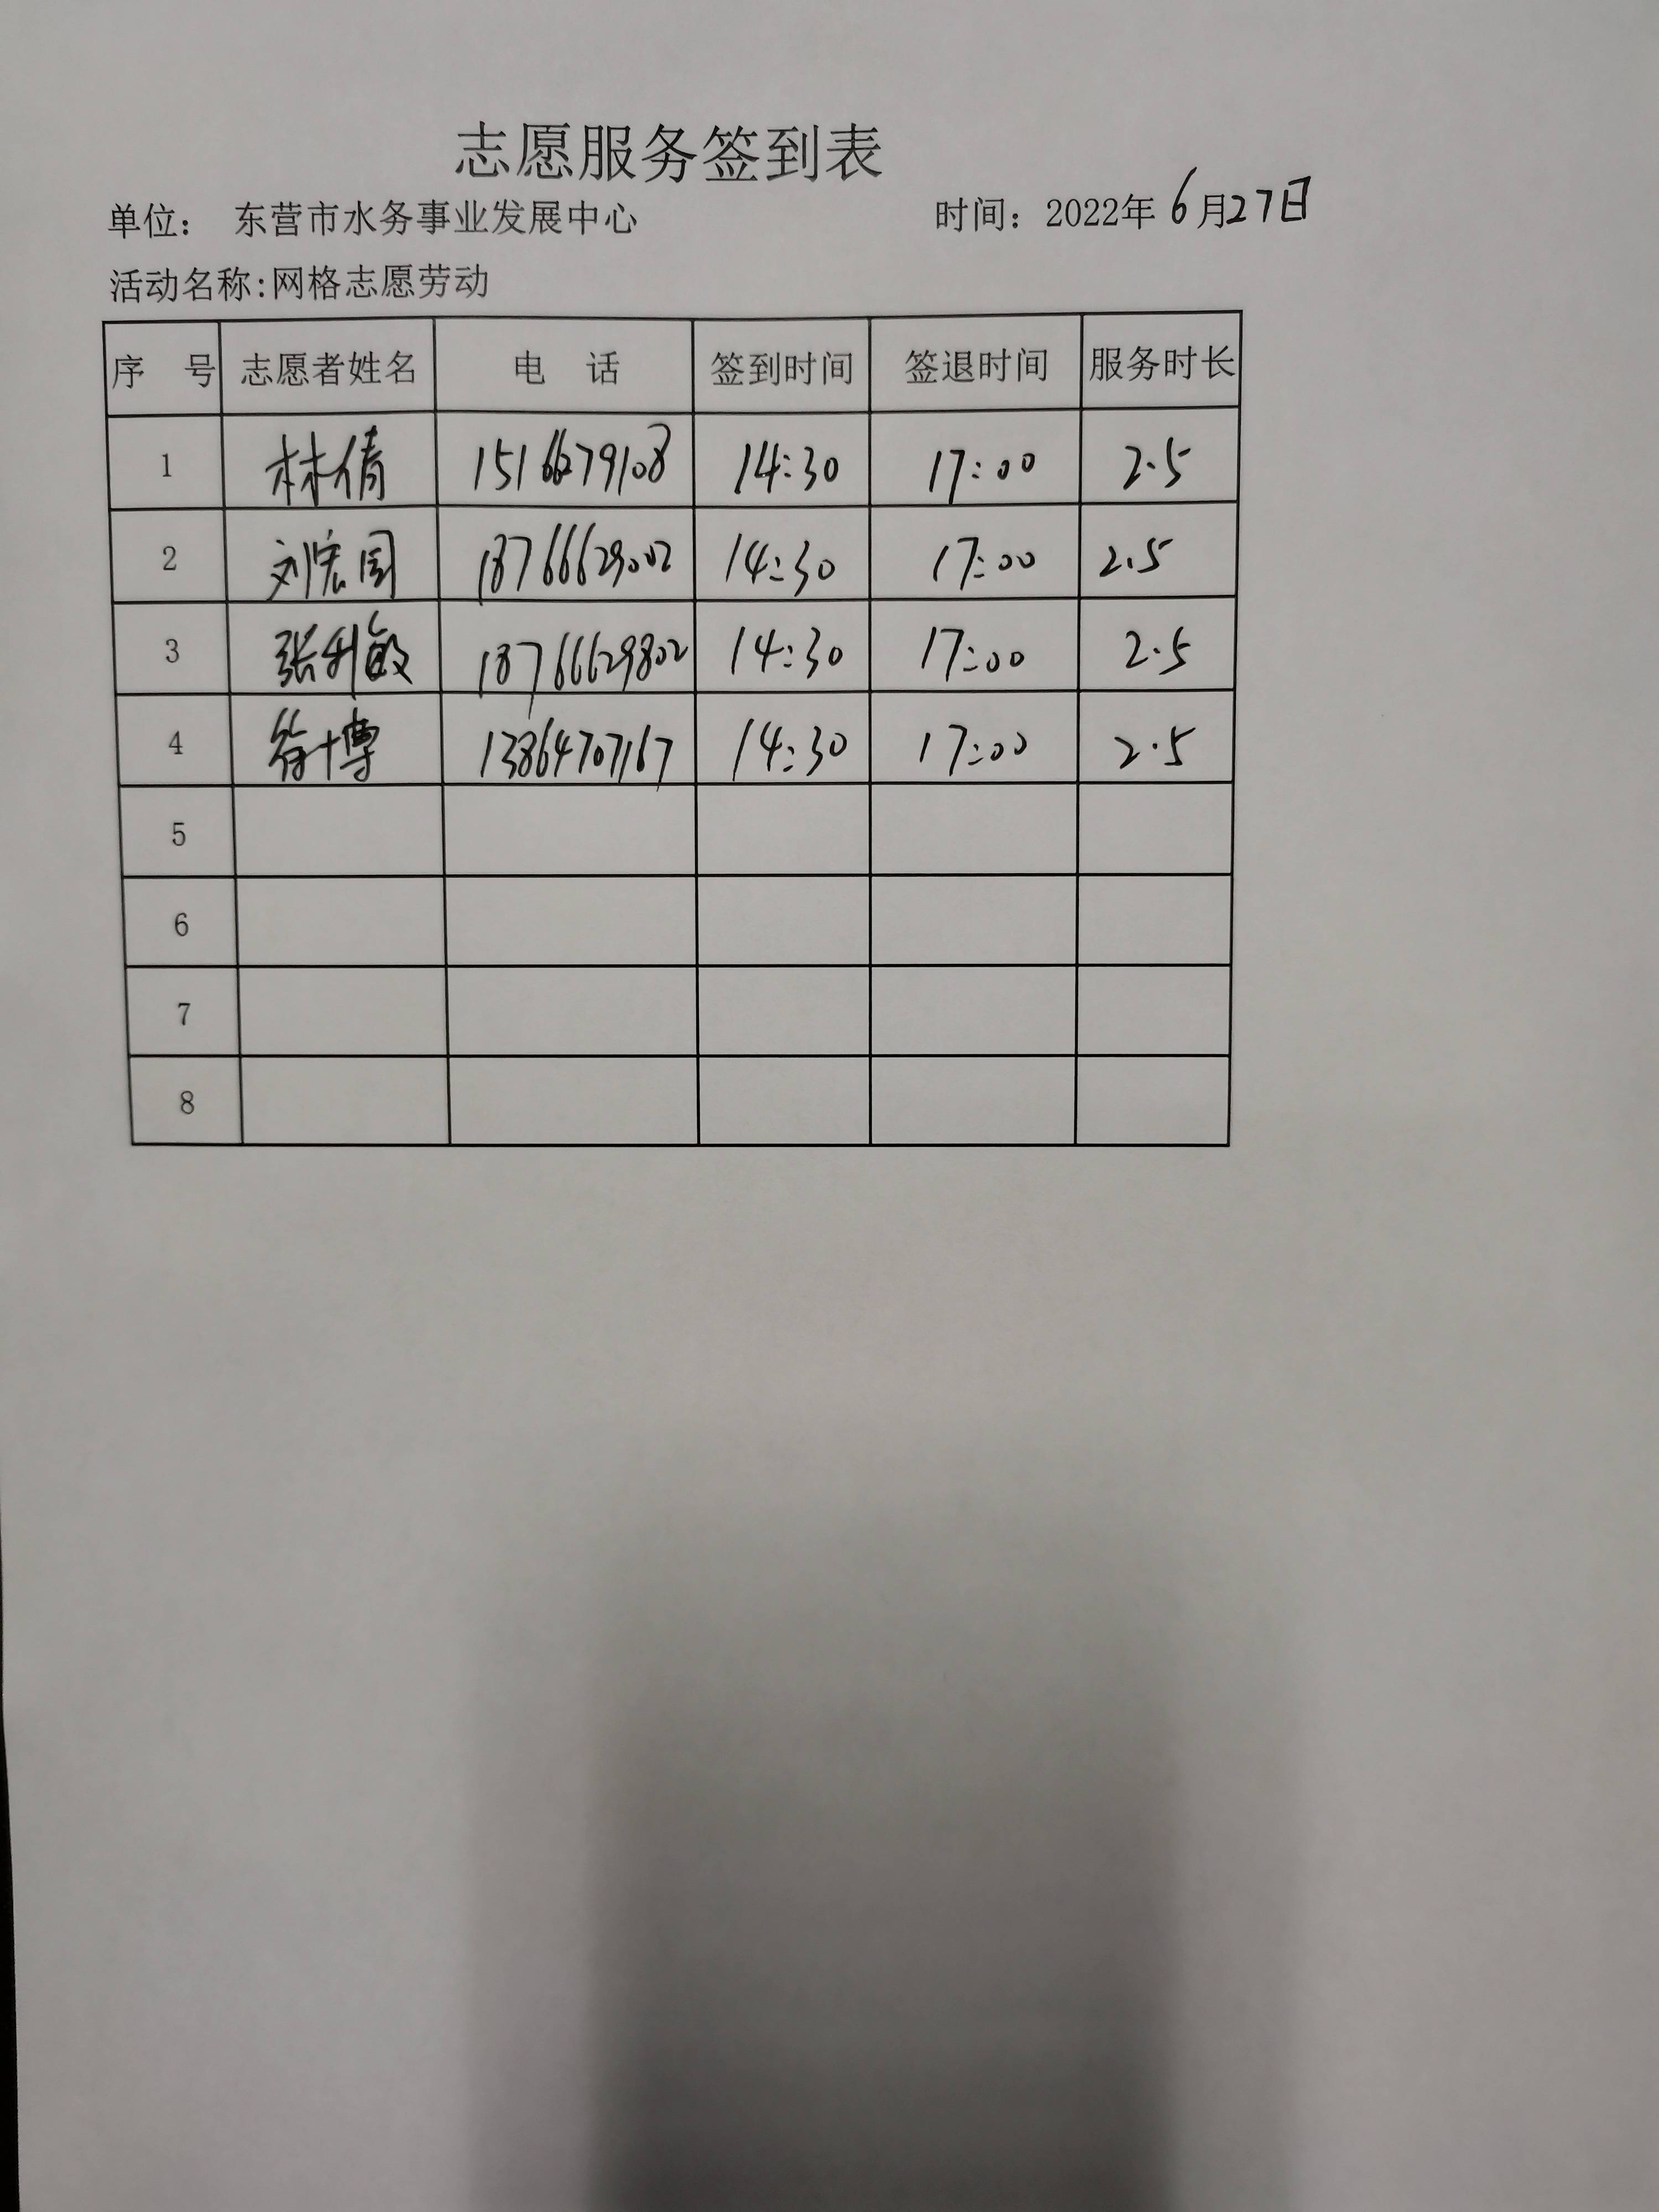 志愿服务签到表
单位： 东营市水务事业发展中心 时间：2022年6月27日
活动名称:网格志愿劳动
序 号 志愿者姓名 电 话 签到时间 签退时间 服务时长
1 林倩 14:30 17:00 2.5
2 刘宏国 18766629002 14:30 17:00 2.5
3 张利敏 18766629802 14:30 17:00 2.5
4 徐博 13864707167 14:30 17:00 2.5
5
6
7
8